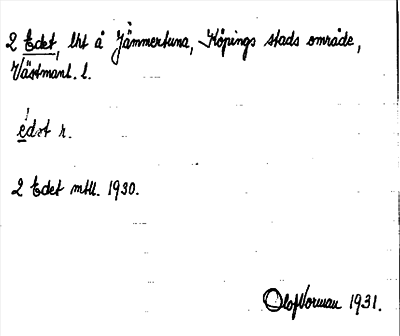 2 Edet, lht å Jämmertuna, Köpings stads område,
Västmanl. l.
édət n.
2 Edet mtll. 1930.
Olof Norman 1931.